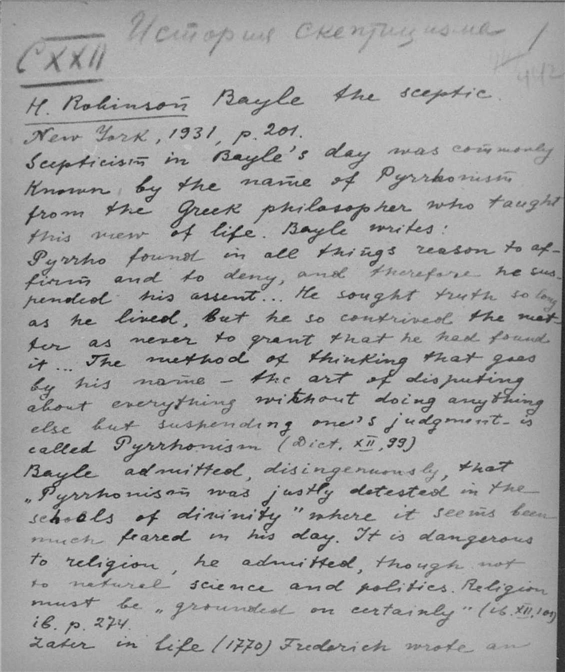 История скептицизма 1
CXXII 442
H. Robinson Bayle the sceptic.
New York, 1931, p. 201.
Scepticism in Bayle's day was commonly
Known by the name of Pyrrhonism
from the Greek philosopher who taught
this view of life. Bayle writes:
Pyrrho found in all things reason to af-
firm and to deny, and therefore he sus-
pended his assent... He sought truth so long
as he lived, but he so contrived the mat-
ter as never to grant that he had found
it... The method of thinking that goes
by his name – the art of disputing
about everything without doing anything
else but suspending one's judgment – is
called Pyrrhonism (Dict. XII, 99)
Bayle admitted, disingenuously, that
„Pyrrhonism was justly detested in the
schools of divinity" where it seems been
much feared in his day. It is dangerous
to religion, he admitted, though not
to natural science and politics. Religion
must be „grounded on certainly" (ib. XII, 101)
ib. p. 274.
Later in life (1770) Frederich wrote an